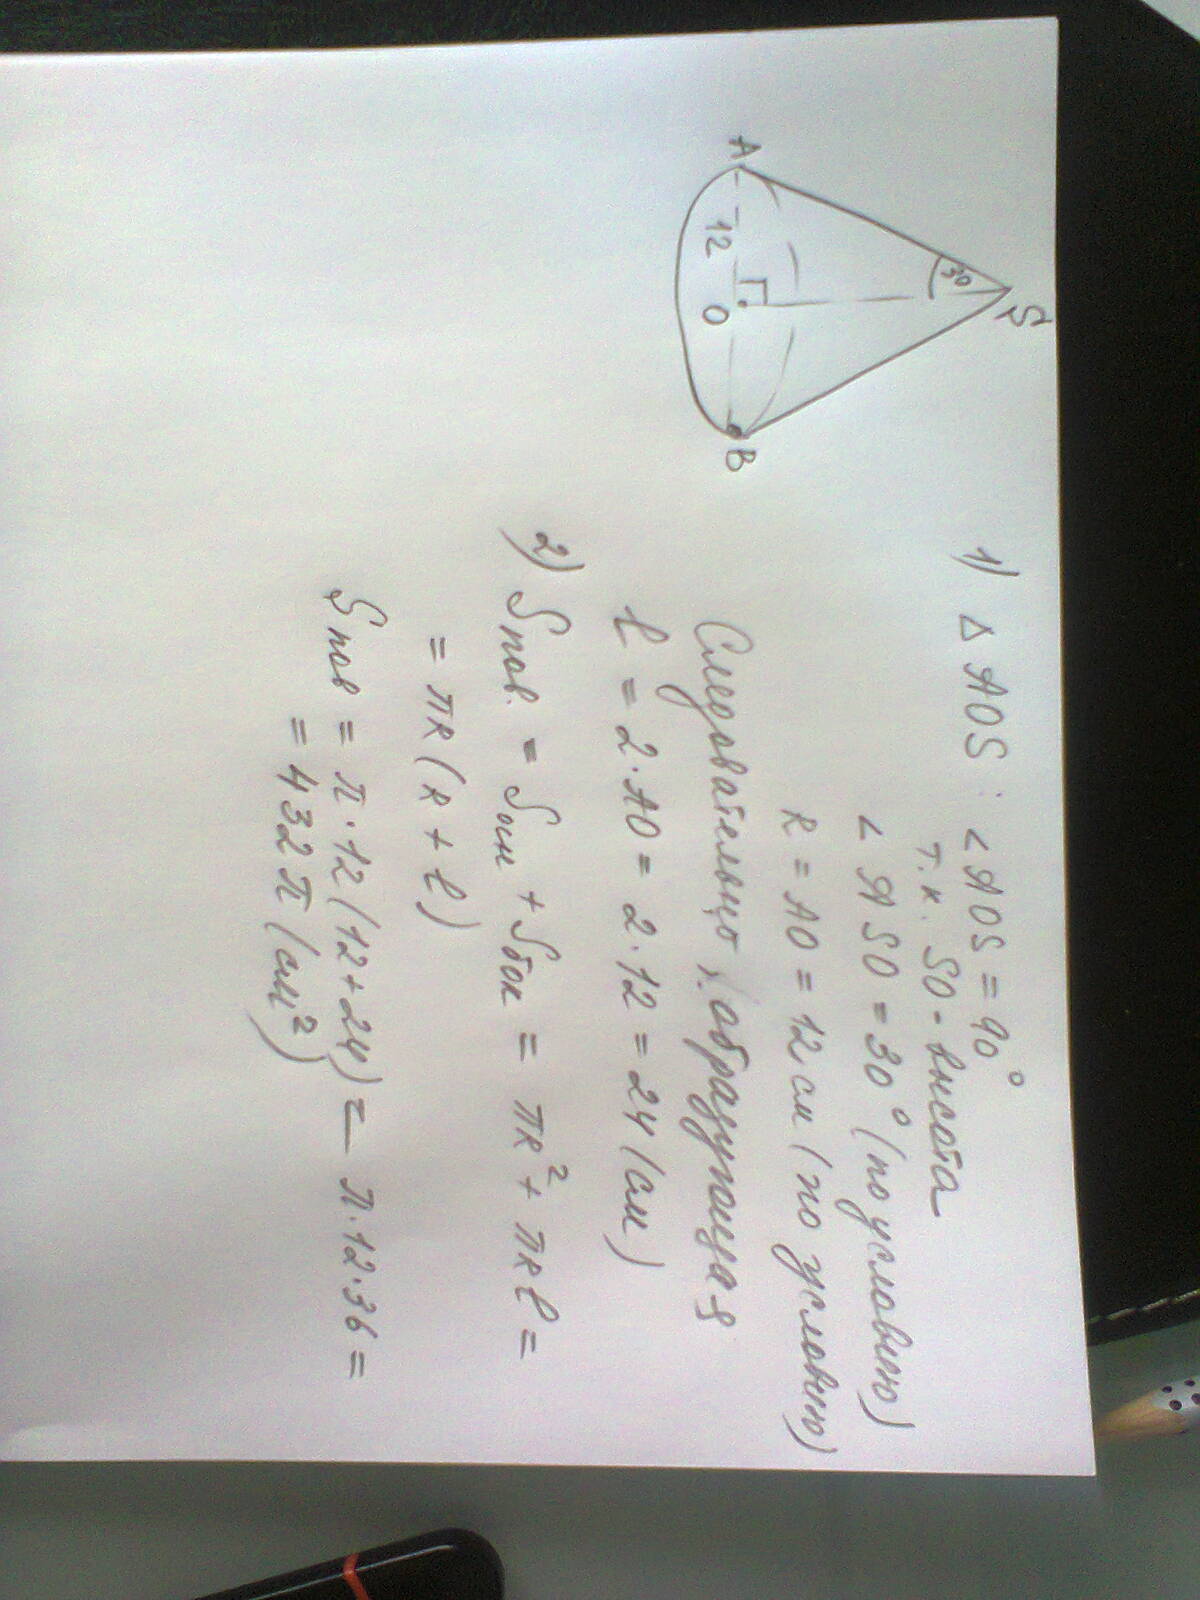 S
30
A
12
O
B
1) △ AOS: ∠AOS = 90°
т.к. SO - высота
∠ ASO = 30° (по условию)
R = AO = 12 см (по условию)
Следовательно, образующая
ℓ = 2·AO = 2·12 = 24 (см)
2) Sпов. = Sосн + Sбок = πR² + πRℓ =
= πR (R + ℓ)
Sпов = π·12 (12+24) = π·12·36 =
= 432 π (см²)